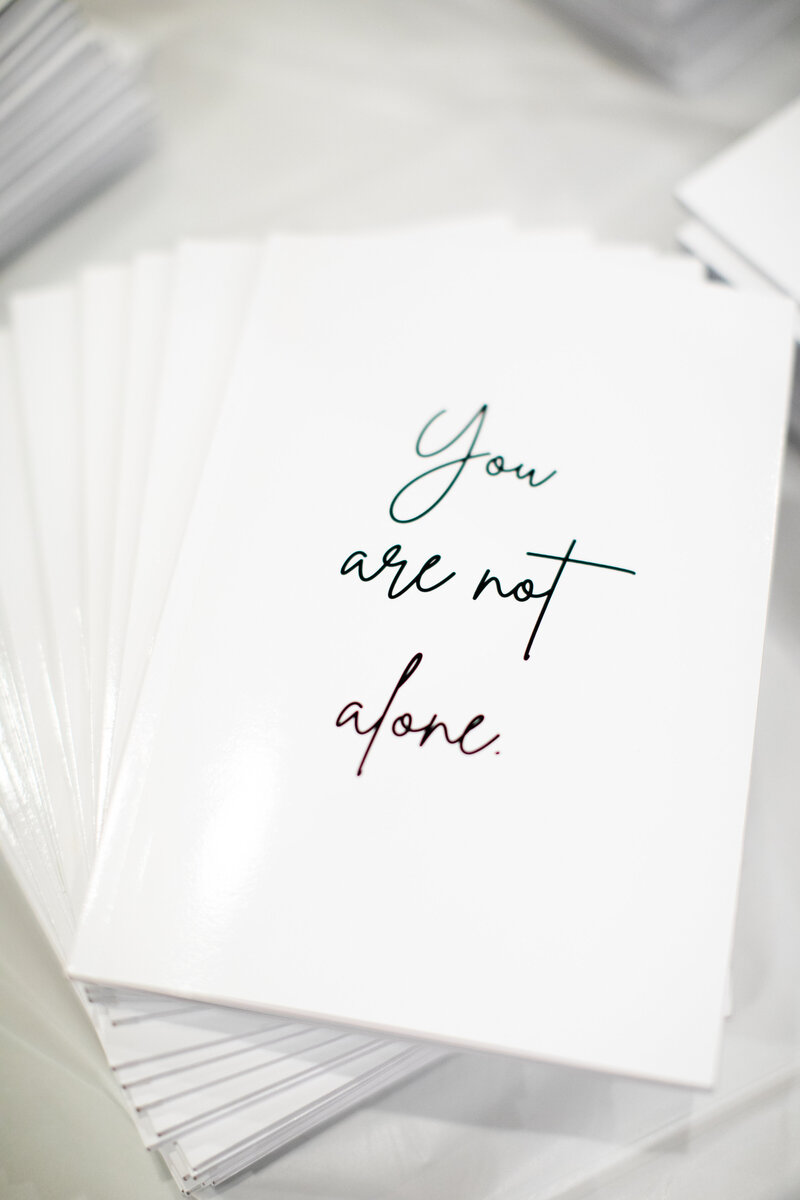 You
are not
alone.